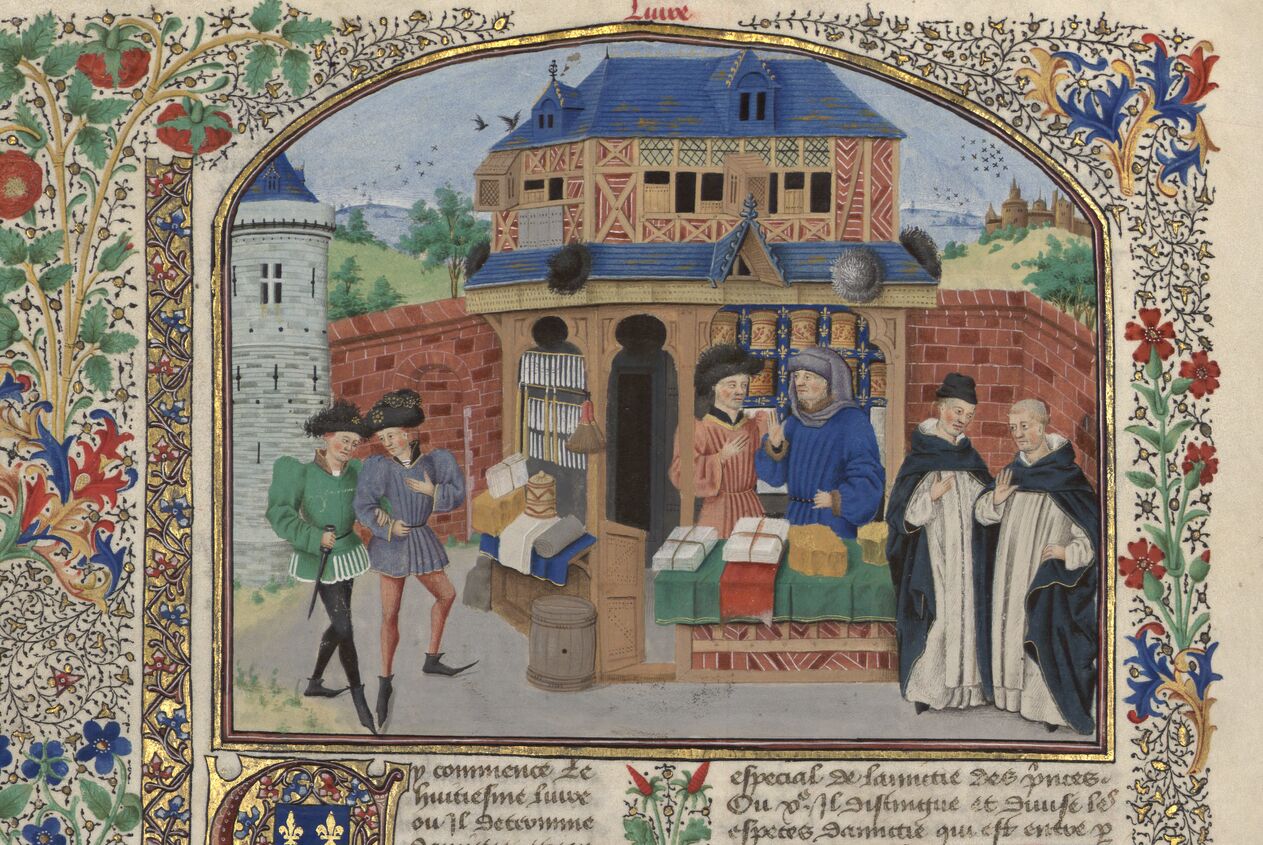 Liure
y commence le
huitiesme liure
ou Il determine
especial de lamictie des prices.
Ou xe. Il distingue et diuise les
especes damictie qui est entre p